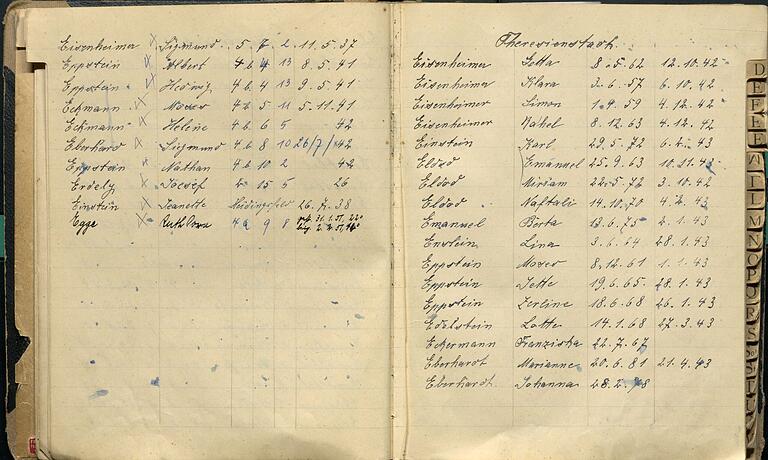 Eisenheimer × Sigmund 5 7 2 11.5.37
Eppstein × Albert 4b 4 13 8.5.41
Eppstein × Hedwig 4b 4 13 9.5.41
Eckmann × Moses 4b 5 11 5.11.41
Eckmann × Helene 4b 6 5 42
Eberhard × Sigmund 4b 8 10 26/7/42
Eppstein × Nathan 4b 10 2 42
Erdely × Josef 15 5 26
Einstein × Jeanette Heidingsfeld 26.7.38
Egge × Ruth 4a 9 8
Theresienstadt
Eisenheimer Jetta 8.5.62 12.10.42
Eisenheimer Klara 3.6.57 6.10.42
Eisenheimer Simon 1.4.59 4.12.42
Eisenheimer Rahel 8.12.63 4.12.42
Einstein Karl 29.5.72 6.2.43
Eldod Emanuel 25.9.63
Eldod Miriam 22.5.72 3.10.42
Eldod Naftali 14.10.70 4.2.43
Emanuel Berta 13.6.75 2.1.43
Enslein Lina 3.6.64 28.1.43
Eppstein Moses 8.12.61 1.1.43
Eppstein Jette 19.6.65 28.1.43
Eppstein Zerline 18.6.68 26.1.43
Edelstein Lotte 14.1.68 27.3.43
Eckermann Franziska 22.7.67
Eberhardt Marianne 20.6.81 21.4.43
Eberhardt Johanna 28.2.78
D
E
F